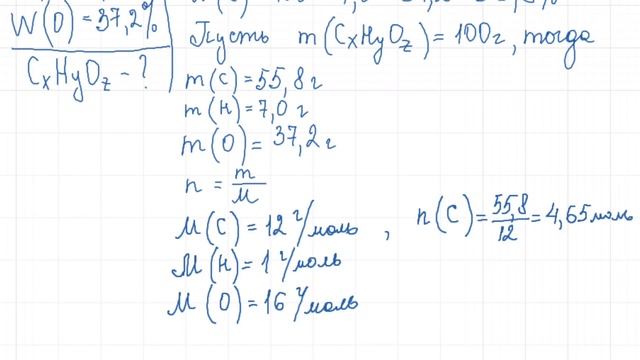 W(O)=37,2%
CxHyOz-?
Пусть m(CxHyOz)=100г, тогда
m(C)=55,8г
m(H)=7,0 г
m(O)=37,2г
n = m/M
M(C)=12 г/моль , n(C)=55,8/12=4,65моль
M(H)=1 г/моль
M(O)=16 г/моль